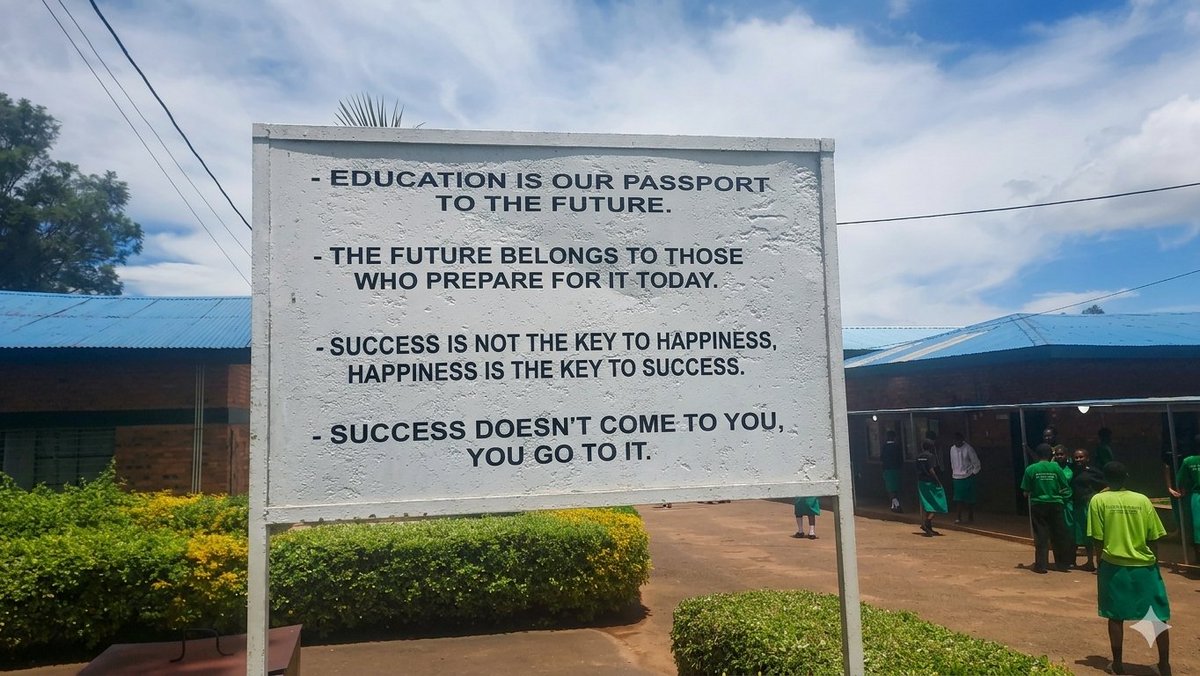 - EDUCATION IS OUR PASSPORT
TO THE FUTURE.
- THE FUTURE BELONGS TO THOSE
WHO PREPARE FOR IT TODAY.
- SUCCESS IS NOT THE KEY TO HAPPINESS,
HAPPINESS IS THE KEY TO SUCCESS.
- SUCCESS DOESN'T COME TO YOU,
YOU GO TO IT.